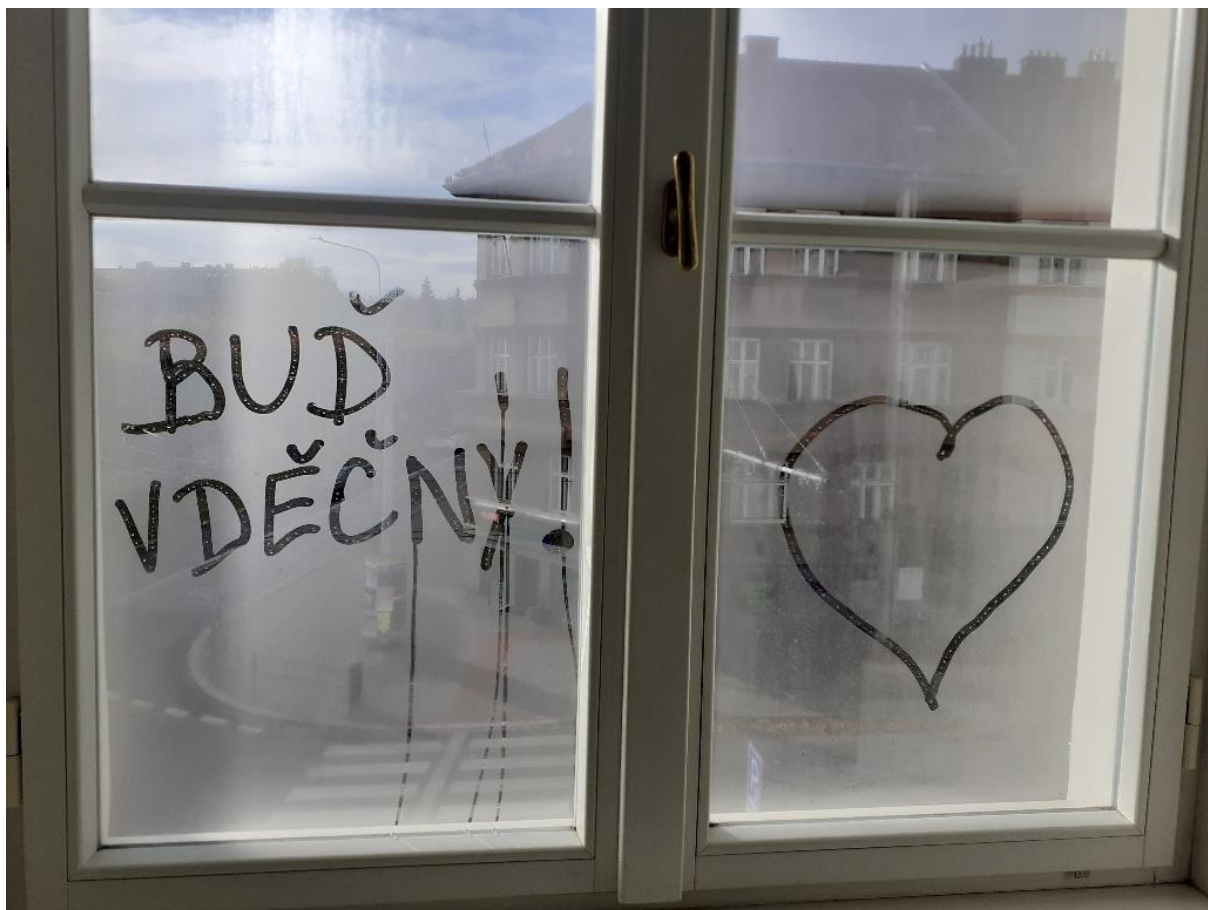 BUĎ
VDĚČNY!